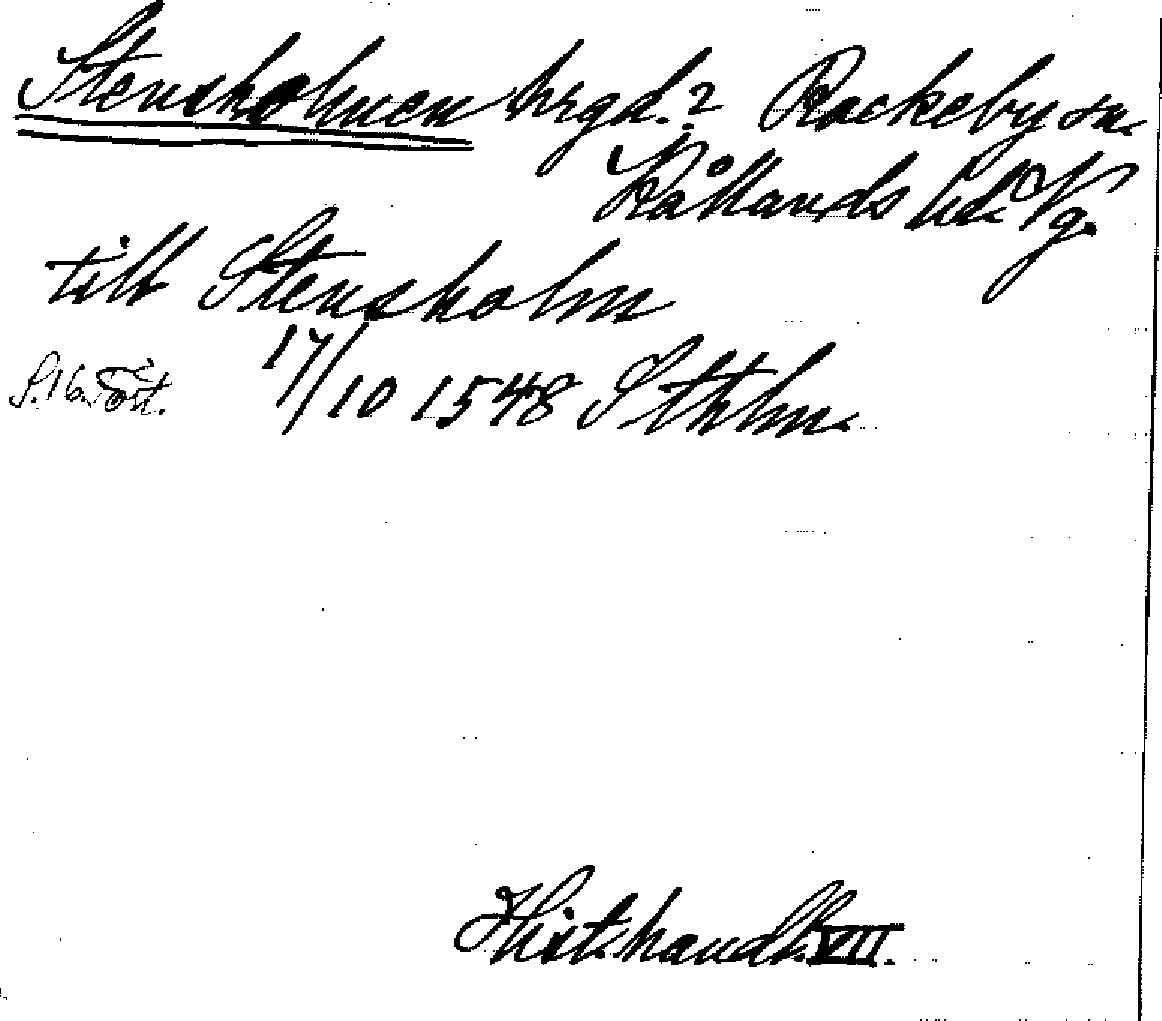 Stensholmen hrgd.? Rackeby sn.
Kållands hd. Vg.
till Stensholm
17/10 1548 Sthlm.
S. 16. Tört.
Hist. handl. VII.